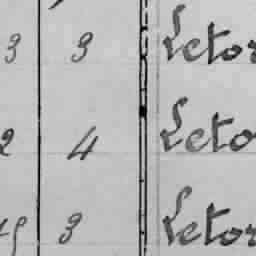 3 3 Letor
2 4 Leto
45 3 Letor